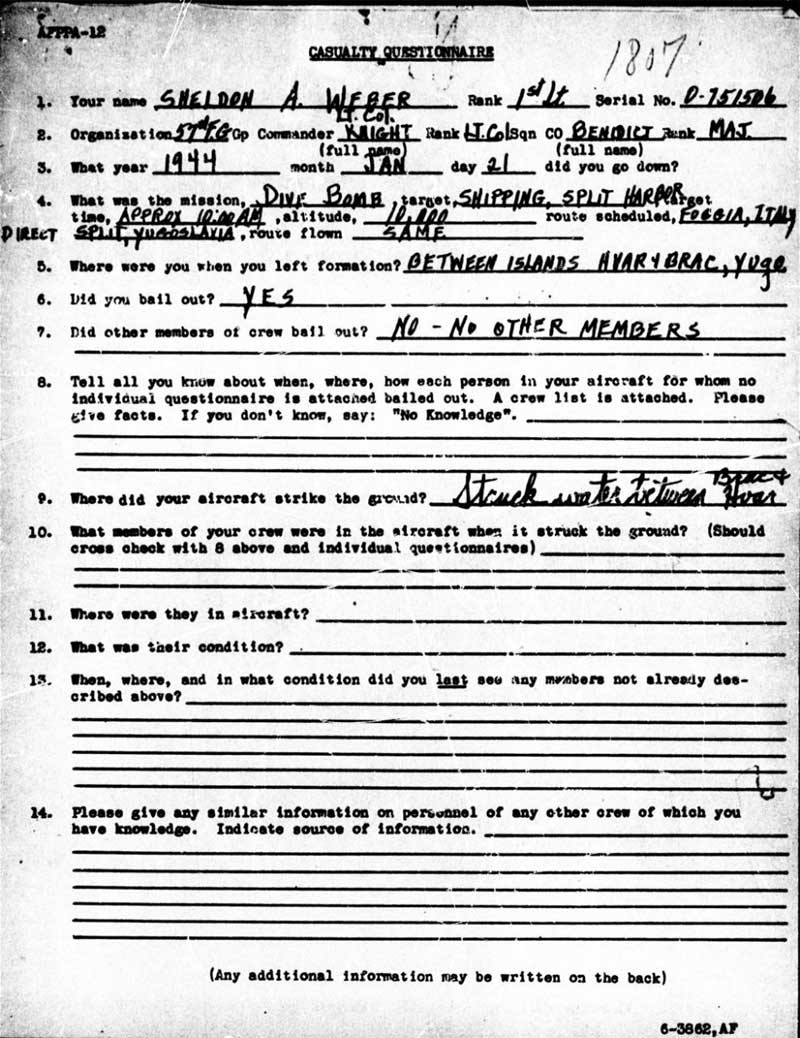 AFPPA-12
CASUALTY QUESTIONNAIRE
1807
1. Your name SHELDON A. WEBER Rank 1st Lt Serial No. O-751506
Lt. Col.
2. Organization 57th FG Gp Commander KNIGHT Rank Lt. Col Sqn CO BENIDICT Rank MAJ.
(full name) (full name)
3. What year 1944 month JAN day 21 did you go down?
4. What was the mission, DIVE BOMB, target, SHIPPING, SPLIT HARBOR target
time, APPROX 10:00 AM, altitude, 10,000 route scheduled, FOGGIA, ITALY
DIRECT SPLIT, YUGOSLAVIA, route flown SAME
5. Where were you when you left formation? BETWEEN ISLANDS HVAR & BRAC, Yugo
6. Did you bail out? YES
7. Did other members of crew bail out? NO - NO OTHER MEMBERS
8. Tell all you know about when, where, how each person in your aircraft for whom no
individual questionnaire is attached bailed out. A crew list is attached. Please
give facts. If you don't know, say: "No Knowledge".
9. Where did your aircraft strike the ground? Struck water between Brac & Hvar
10. What members of your crew were in the aircraft when it struck the ground? (Should
cross check with 8 above and individual questionnaires)
11. Where were they in aircraft?
12. What was their condition?
13. When, where, and in what condition did you last see any members not already des-
cribed above?
14. Please give any similar information on personnel of any other crew of which you
have knowledge. Indicate source of information.
(Any additional information may be written on the back)
6-3862,AF